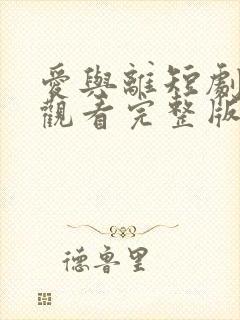 愛與離短劇
觀看完整版
德魯里